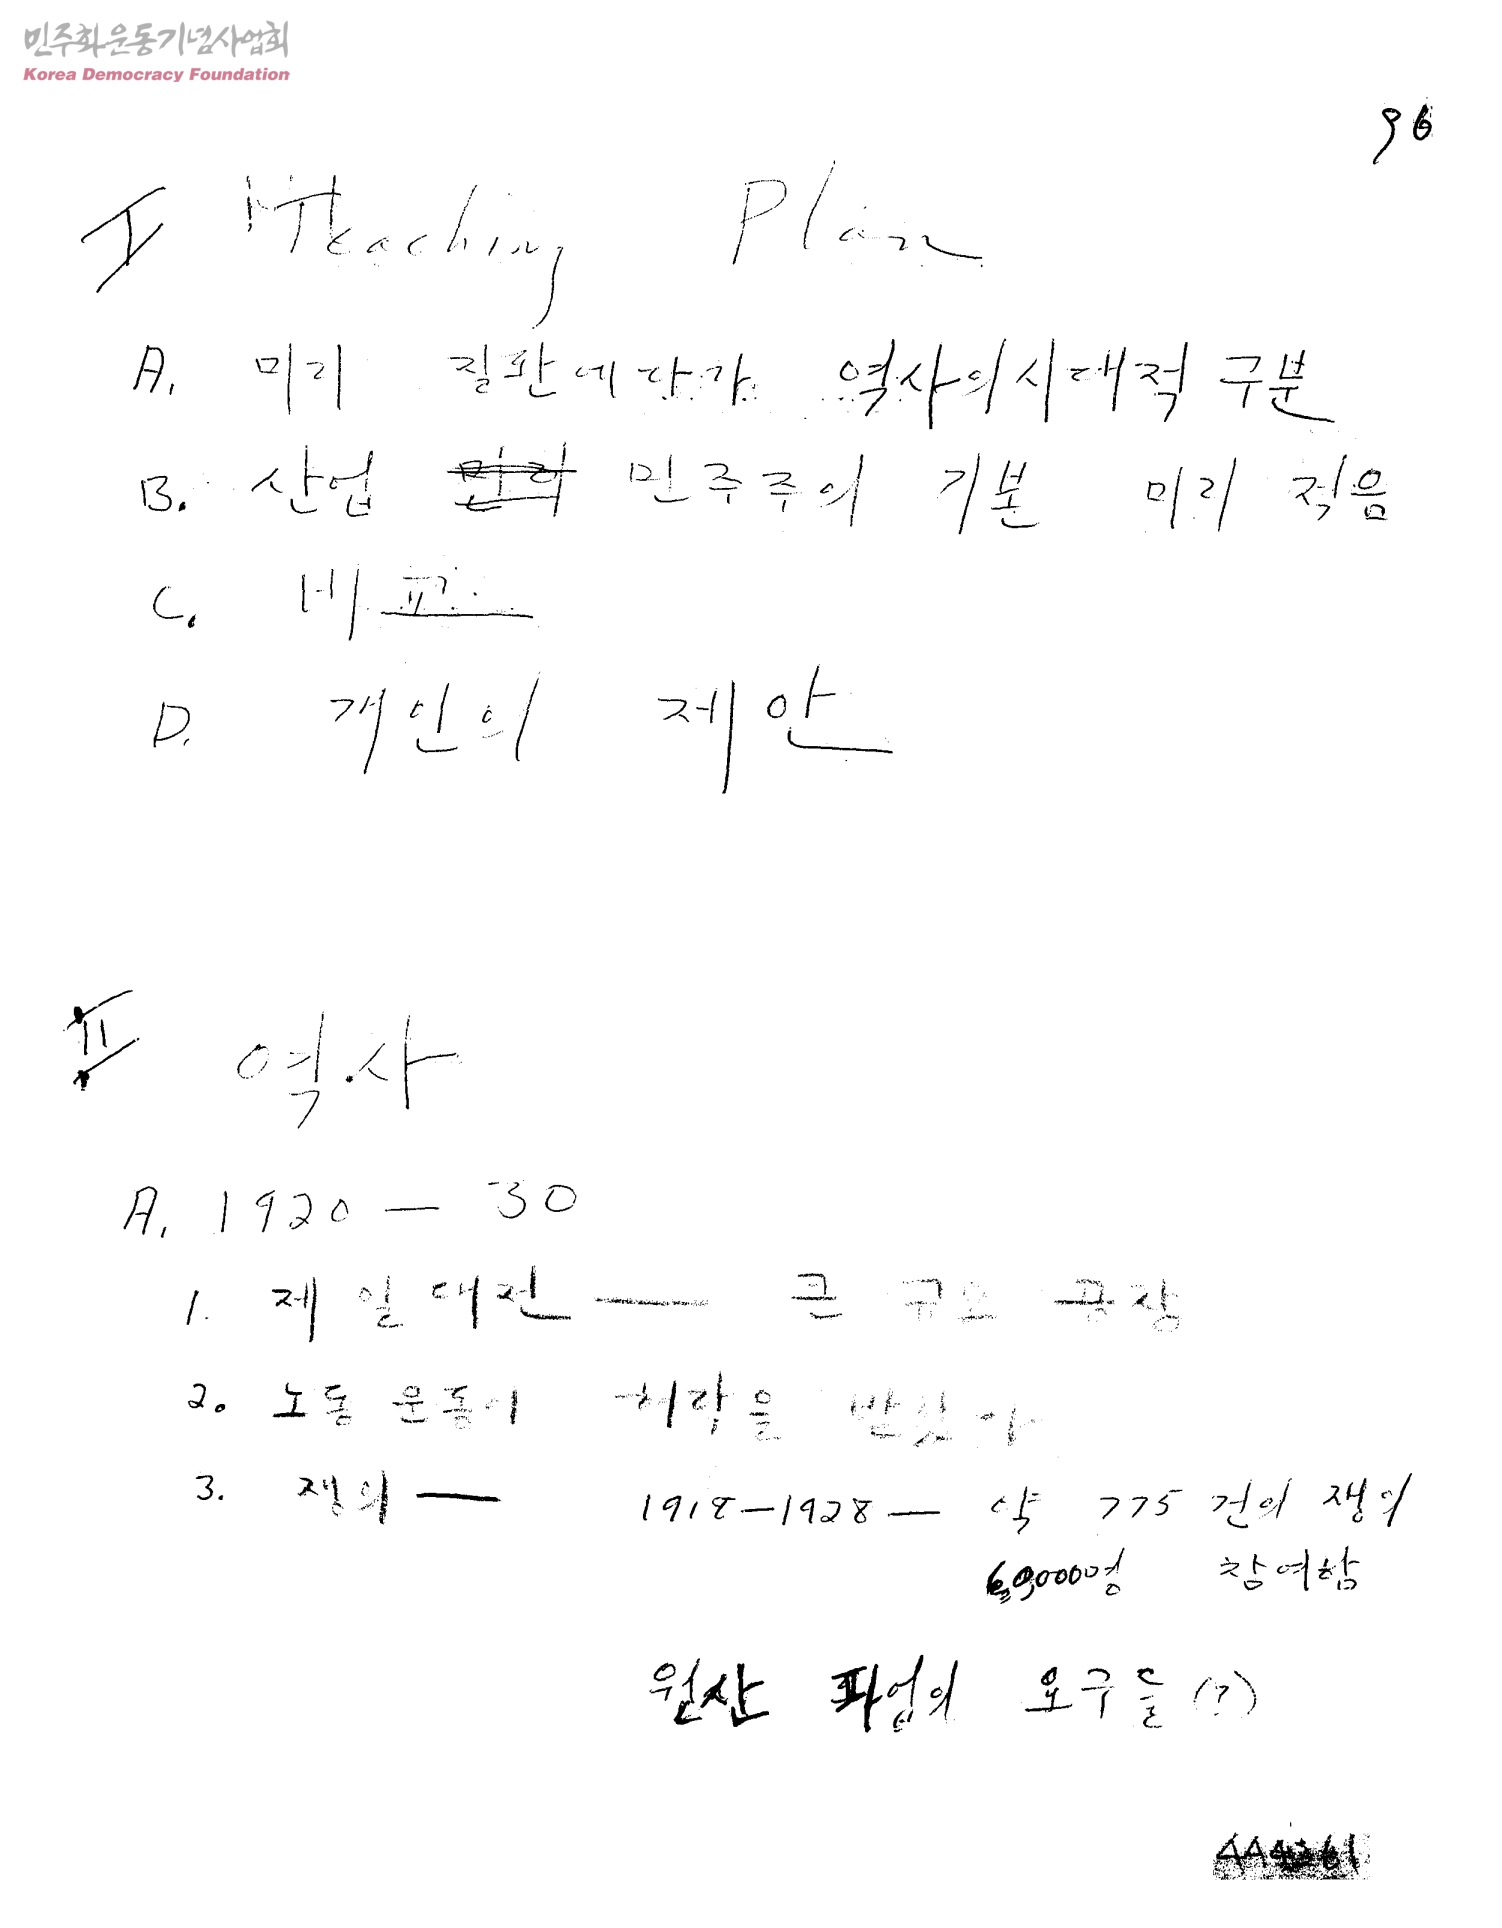 민주화운동기념사업회
Korea Democracy Foundation
96
I Teaching Plan
A. 미리 질판에다가 역사의 시대적 구분
B. 산업 민주주의 기본 미리 적음
C. 비교
D. 개인의 제안
II 역사
A. 1920 — 30
1. 제일대전 — 큰 규모 공장
2. 노동 운동이 허락을 받았다
3. 쟁의 — 1918-1928 — 약 775 건의 쟁의
69,000명 참여함
원산 파업의 요구들 (?)